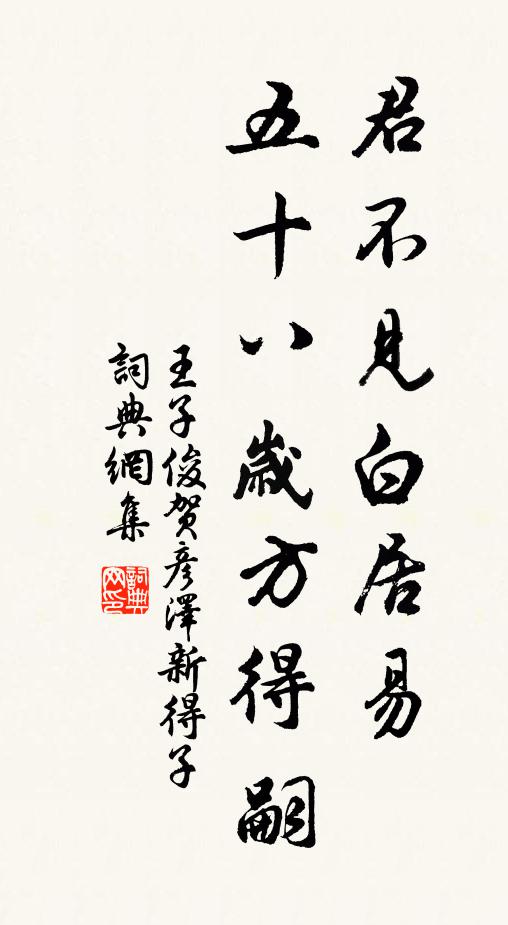 君不見白居易
五十八歲方得嗣
王子俊賀彥澤新得子
詞典網集
詞典網印